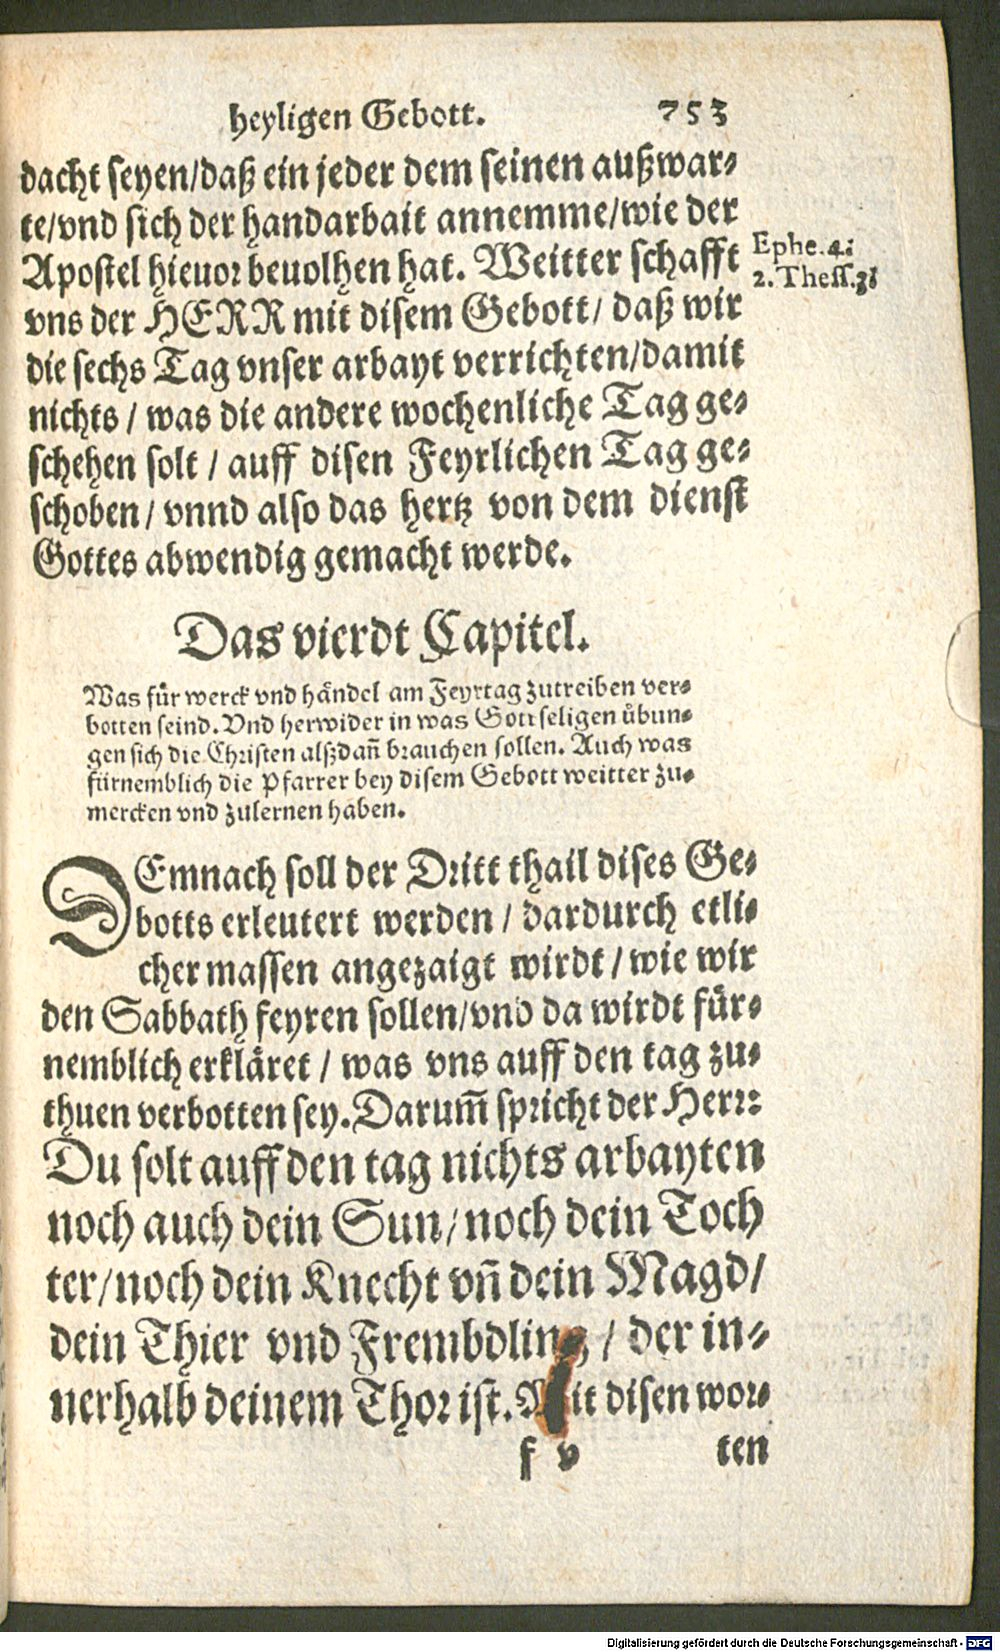 heyligen Gebott. 753
dacht seyen/daß ein jeder dem seinen außwar-
te/vnd sich der handarbait annemme/wie der
Apostel hieuor beuolhen hat. Weitter schafft
Ephe.4.
2. Thess.3
vns der HERR mit disem Gebott/ daß wir
die sechs Tag vnser arbayt verrichten/damit
nichts / was die andere wochenliche Tag ge-
schehen solt / auff disen Feyrlichen Tag ge-
schoben/ vnnd also das hertz von dem dienst
Gottes abwendig gemacht werde.
Das vierdt Capitel.
Was für werck vnd händel am Feyrtag zutreiben ver-
botten seind. Vnd herwider in was Gottseligen übun-
gen sich die Christen alßdañ brauchen sollen. Auch was
fürnemblich die Pfarrer bey disem Gebott weitter zu-
mercken vnd zulernen haben.
DEmnach soll der Dritt thail dises Ge-
botts erleutert werden / dardurch etli-
cher massen angezaigt wirdt / wie wir
den Sabbath feyren sollen/vnd da wirdt für-
nemblich erkläret / was vns auff den tag zu-
thuen verbotten sey. Darum̃ spricht der Herr:
Du solt auff den tag nichts arbayten
noch auch dein Sun/ noch dein Toch
ter/noch dein Knecht vñ dein Magd/
dein Thier vnd Frembdling / der in-
nerhalb deinem Thor ist. Mit disen wor-
f v ten
Digitalisierung gefördert durch die Deutsche Forschungsgemeinschaft - DFG